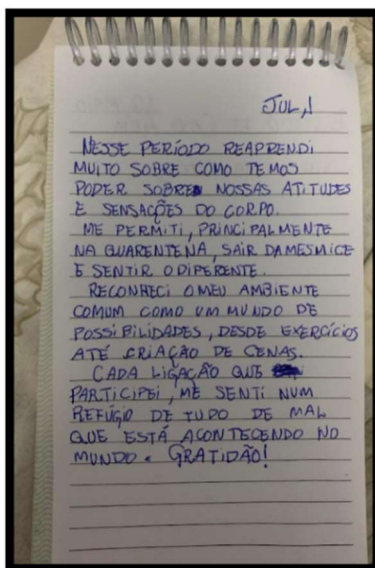 JUL,1
NESSE PERÍODO REAPRENDI
MUITO SOBRE COMO TEMOS
PODER SOBRE NOSSAS ATITUDES
E SENSAÇÕES DO CORPO.
ME PERMITI, PRINCIPALMENTE
NA QUARENTENA, SAIR DA MESMICE
E SENTIR O DIFERENTE.
RECONHECI O MEU AMBIENTE
COMUM COMO UM MUNDO DE
POSSIBILIDADES, DESDE EXERCÍCIOS
ATÉ CRIAÇÃO DE CENAS.
CADA LIGAÇÃO QUE
PARTICIPEI, ME SENTI NUM
REFÚGIO DE TUDO DE MAL
QUE ESTÁ ACONTECENDO NO
MUNDO. GRATIDÃO!